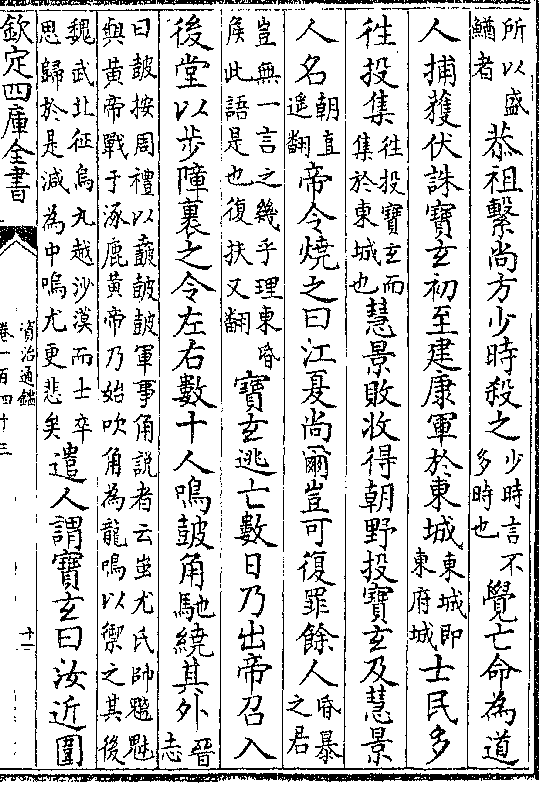 所以盛
鰌者
恭祖繫尚方少時殺之
少時言不
多時也
覺亡命為道
人捕獲伏誅寶玄初至建康軍於東城
東城即
東府城
士民多
徃投集
徃投寶玄而
集於東城也
慧景敗收得朝野投寶玄及慧景
人名
朝直
遥翻
帝令燒之曰江夏尚爾豈可復罪餘人
昏暴
之君
豈無一言之幾乎理東昏
矦此語是也復扶又翻
寶玄逃亡數日乃出帝召入
後堂以步障裹之令左右數十人鳴皷角馳繞其外
晉
志
曰皷按周禮以鼖皷皷軍事角説者云蚩尤氏帥魑魅
與黄帝戰于涿鹿黄帝乃始吹角為龍鳴以禦之其後
魏武北征烏丸越沙漠而士卒
思歸於是減為中鳴尤更悲矣
遣人謂寶玄曰汝近圍
欽定四庫全書
資治通鑑
卷一百四十三